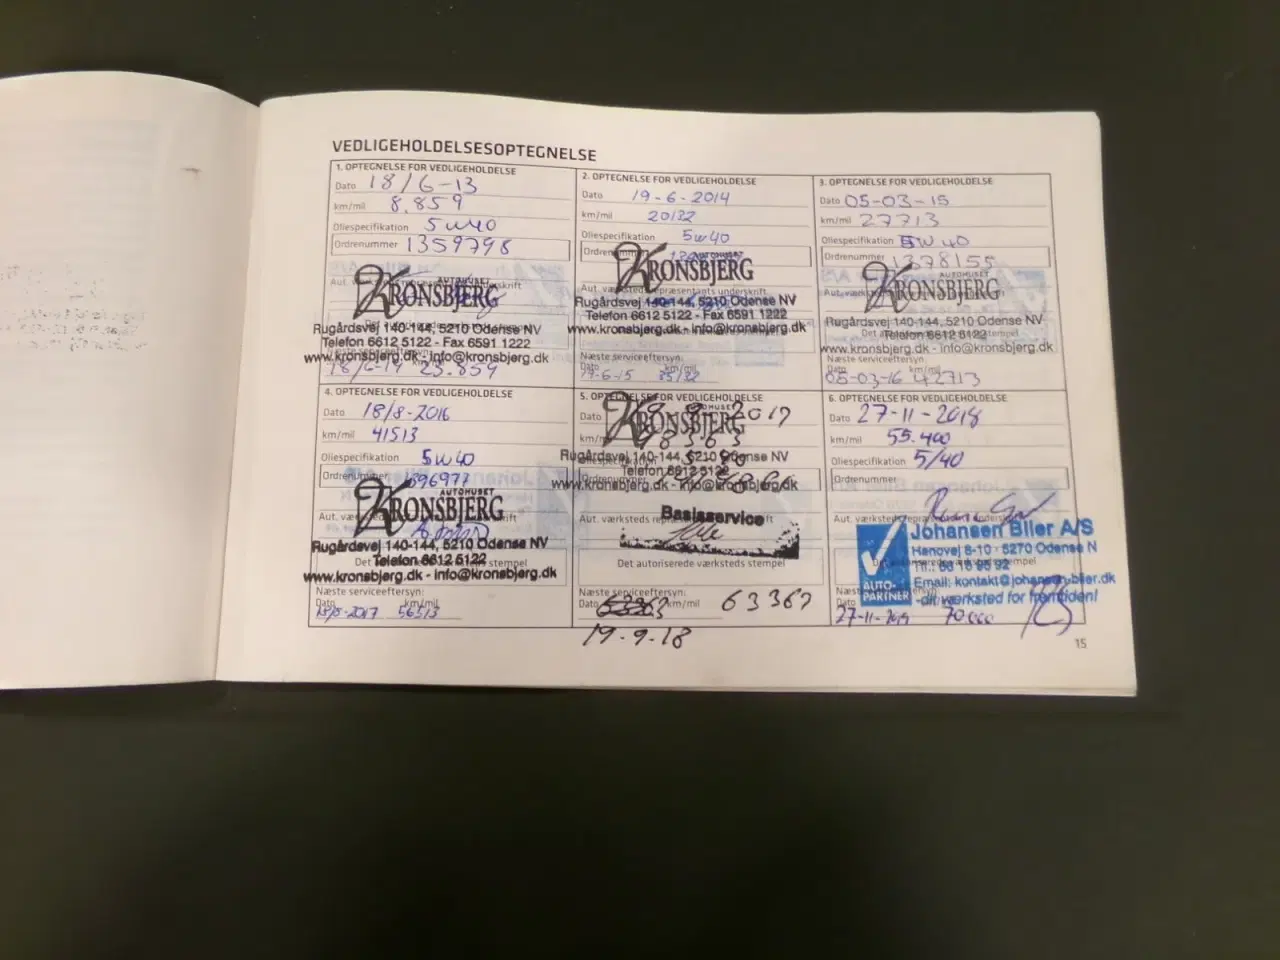 VEDLIGEHOLDELSESOPTEGNELSE
1. OPTEGNELSE FOR VEDLIGEHOLDELSE
Dato 18/6-13
km/mil 8.859
Oliespecifikation 5w40
Ordrenummer 1359798
AUTOHUSET
KRONSBJERG
Rugårdsvej 140-144, 5210 Odense NV
Telefon 6612 5122 - Fax 6591 1222
www.kronsbjerg.dk - info@kronsbjerg.dk
18/6-14 23.859
2. OPTEGNELSE FOR VEDLIGEHOLDELSE
Dato 19-6-2014
km/mil 20132
Oliespecifikation 5w40
Ordrenummer
KRONSBJERG
Aut. værksteds repræsentants underskrift
Rugårdsvej 140-144, 5210 Odense NV
Telefon 6612 5122 - Fax 6591 1222
www.kronsbjerg.dk - info@kronsbjerg.dk
Næste serviceeftersyn:
Dato 19-6-15 km/mil 35132
3. OPTEGNELSE FOR VEDLIGEHOLDELSE
Dato 05-03-15
km/mil 27713
Oliespecifikation 5W40
Ordrenummer 1378155
AUTOHUSET
KRONSBJERG
Rugårdsvej 140-144, 5210 Odense NV
Telefon 6612 5122
www.kronsbjerg.dk - info@kronsbjerg.dk
Næste serviceeftersyn:
Dato 05-03-16 km/mil 42713
4. OPTEGNELSE FOR VEDLIGEHOLDELSE
Dato 18/8-2016
km/mil 41513
Oliespecifikation 5w40
Ordrenummer 1396977
AUTOHUSET
KRONSBJERG
Rugårdsvej 140-144, 5210 Odense NV
Telefon 6612 5122
www.kronsbjerg.dk - info@kronsbjerg.dk
Næste serviceeftersyn:
Dato 18/8-2017 km/mil 56513
5. OPTEGNELSE FOR VEDLIGEHOLDELSE
Dato 2017
km/mil
AUTOHUSET
KRONSBJERG
Rugårdsvej 140-144, 5210 Odense NV
Telefon 6612 5122
www.kronsbjerg.dk - info@kronsbjerg.dk
Basisservice
Det autoriserede værksteds stempel
Næste serviceeftersyn:
Dato km/mil 63367
19.9.18
6. OPTEGNELSE FOR VEDLIGEHOLDELSE
Dato 27-11-2018
km/mil 55.400
Oliespecifikation 5/40
Ordrenummer
AUTO-PARTNER
Johansen Biler A/S
Hanovej 8-10 · 5270 Odense N
Email: kontakt@johansen-biler.dk
-dit værksted for fremtiden!
27-11-2019 70.000
15